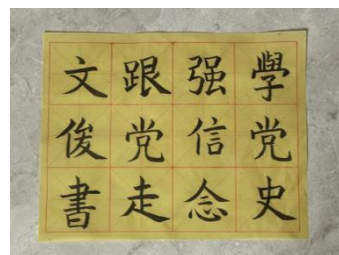 學党史
强信念
跟党走
文俊書